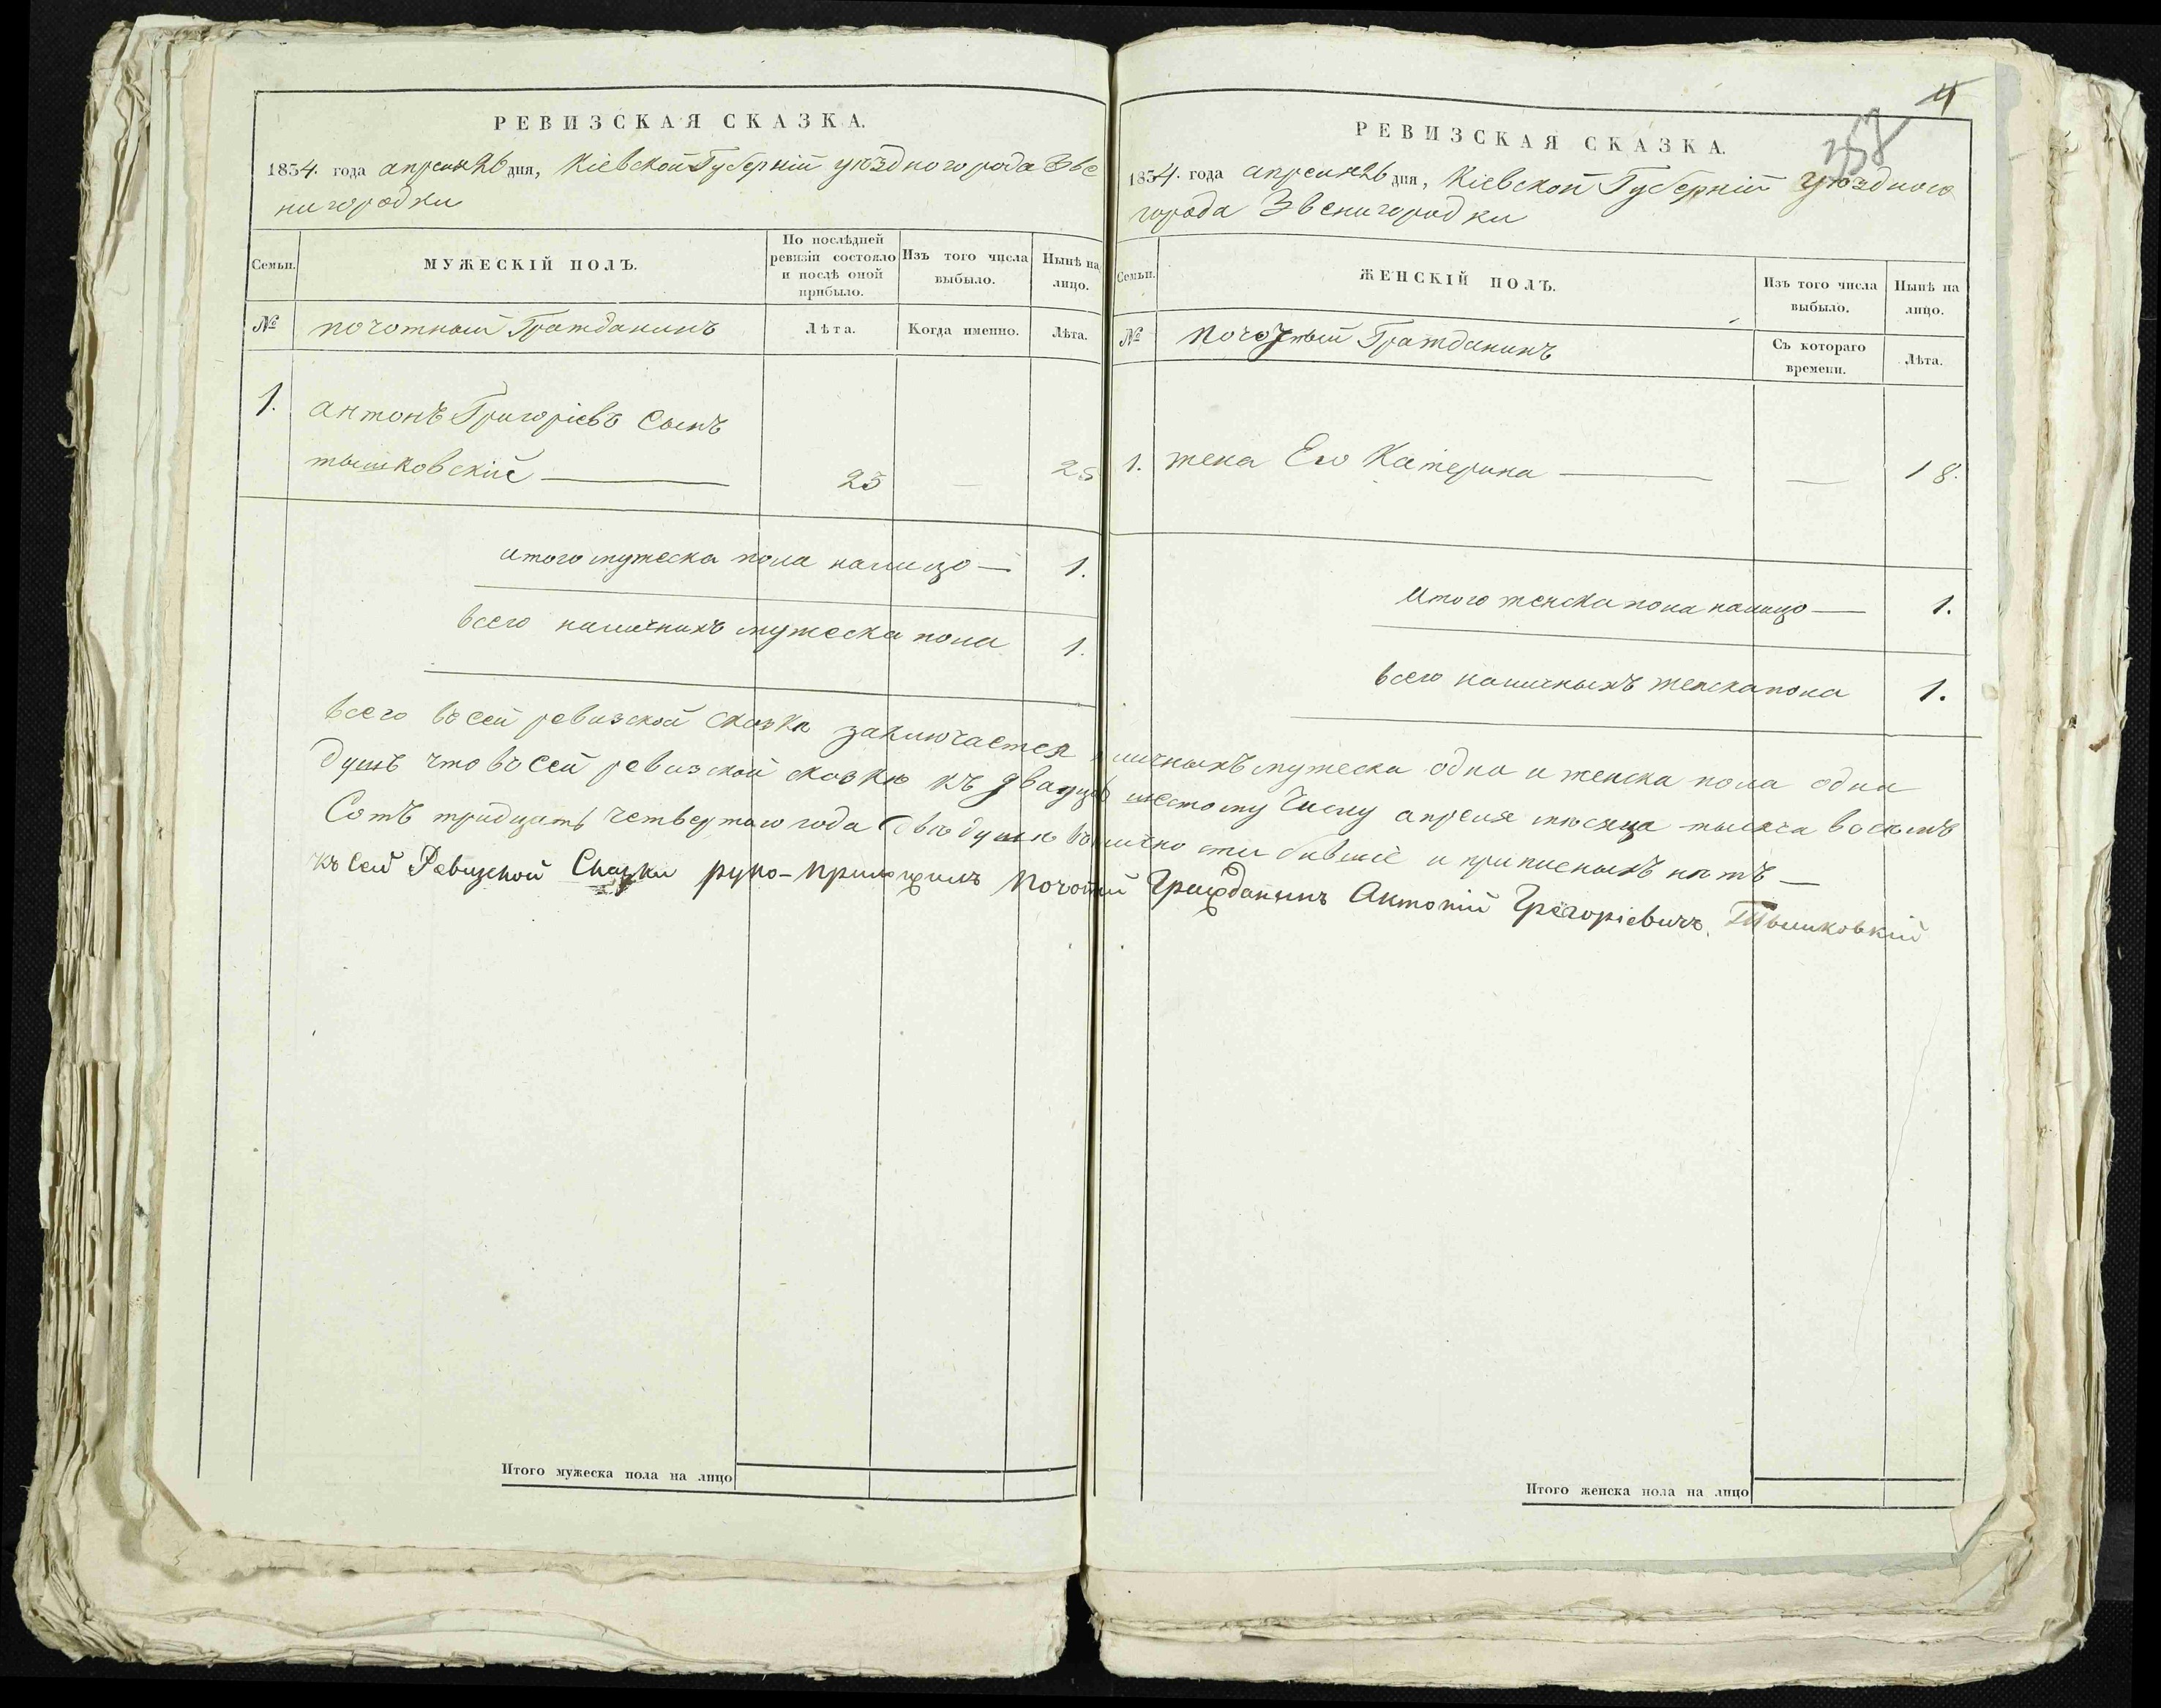 РЕВИЗСКАЯ СКАЗКА.
1834. года апреля 26 дня, Кіевской Губерніи уѣздного города Зве
нигородки
Семьи.
МУЖЕСКІЙ ПОЛЪ.
По послѣдней ревизіи состояло и послѣ оной прибыло.
Изъ того числа выбыло.
Нынѣ на лицо.
№
почотный Гражданинъ
Лѣта.
Когда именно.
Лѣта.
1. антонъ Григоріевъ Сынъ
тышковскій — 25 — 25
итого мужеска пола налицо — 1.
всего наличнихъ мужеска пола 1.
4
358
РЕВИЗСКАЯ СКАЗКА.
1834. года апреля 26 дня, Кіевской Губерніи Уѣздного
города Звенигородки
Семьи.
ЖЕНСКІЙ ПОЛЪ.
Изъ того числа выбыло.
Нынѣ на лицо.
№
почотный Гражданинъ
Съ котораго времени.
Лѣта.
1. жена Его Катерина — — 18.
итого женска пола налицо — 1.
всего наличныхъ женска пола 1.
всего во сей ревизской сказкѣ заключается личныхъ мужеска одна и женска пола одна
душъ что во сей ревизской сказкѣ къ двадцать шестому числу апреля мѣсяца тысяча восемъ
Сотъ тридцать четвертого года двѣ душѣ бывшіе и приписныхъ нѣтъ —
къ Сей Ревизской Сказки руко-приложилъ Почотный Гражданинъ Антоній Грегоріевичъ Тышковскій
Итого мужеска пола на лицо
Итого женска пола на лицо